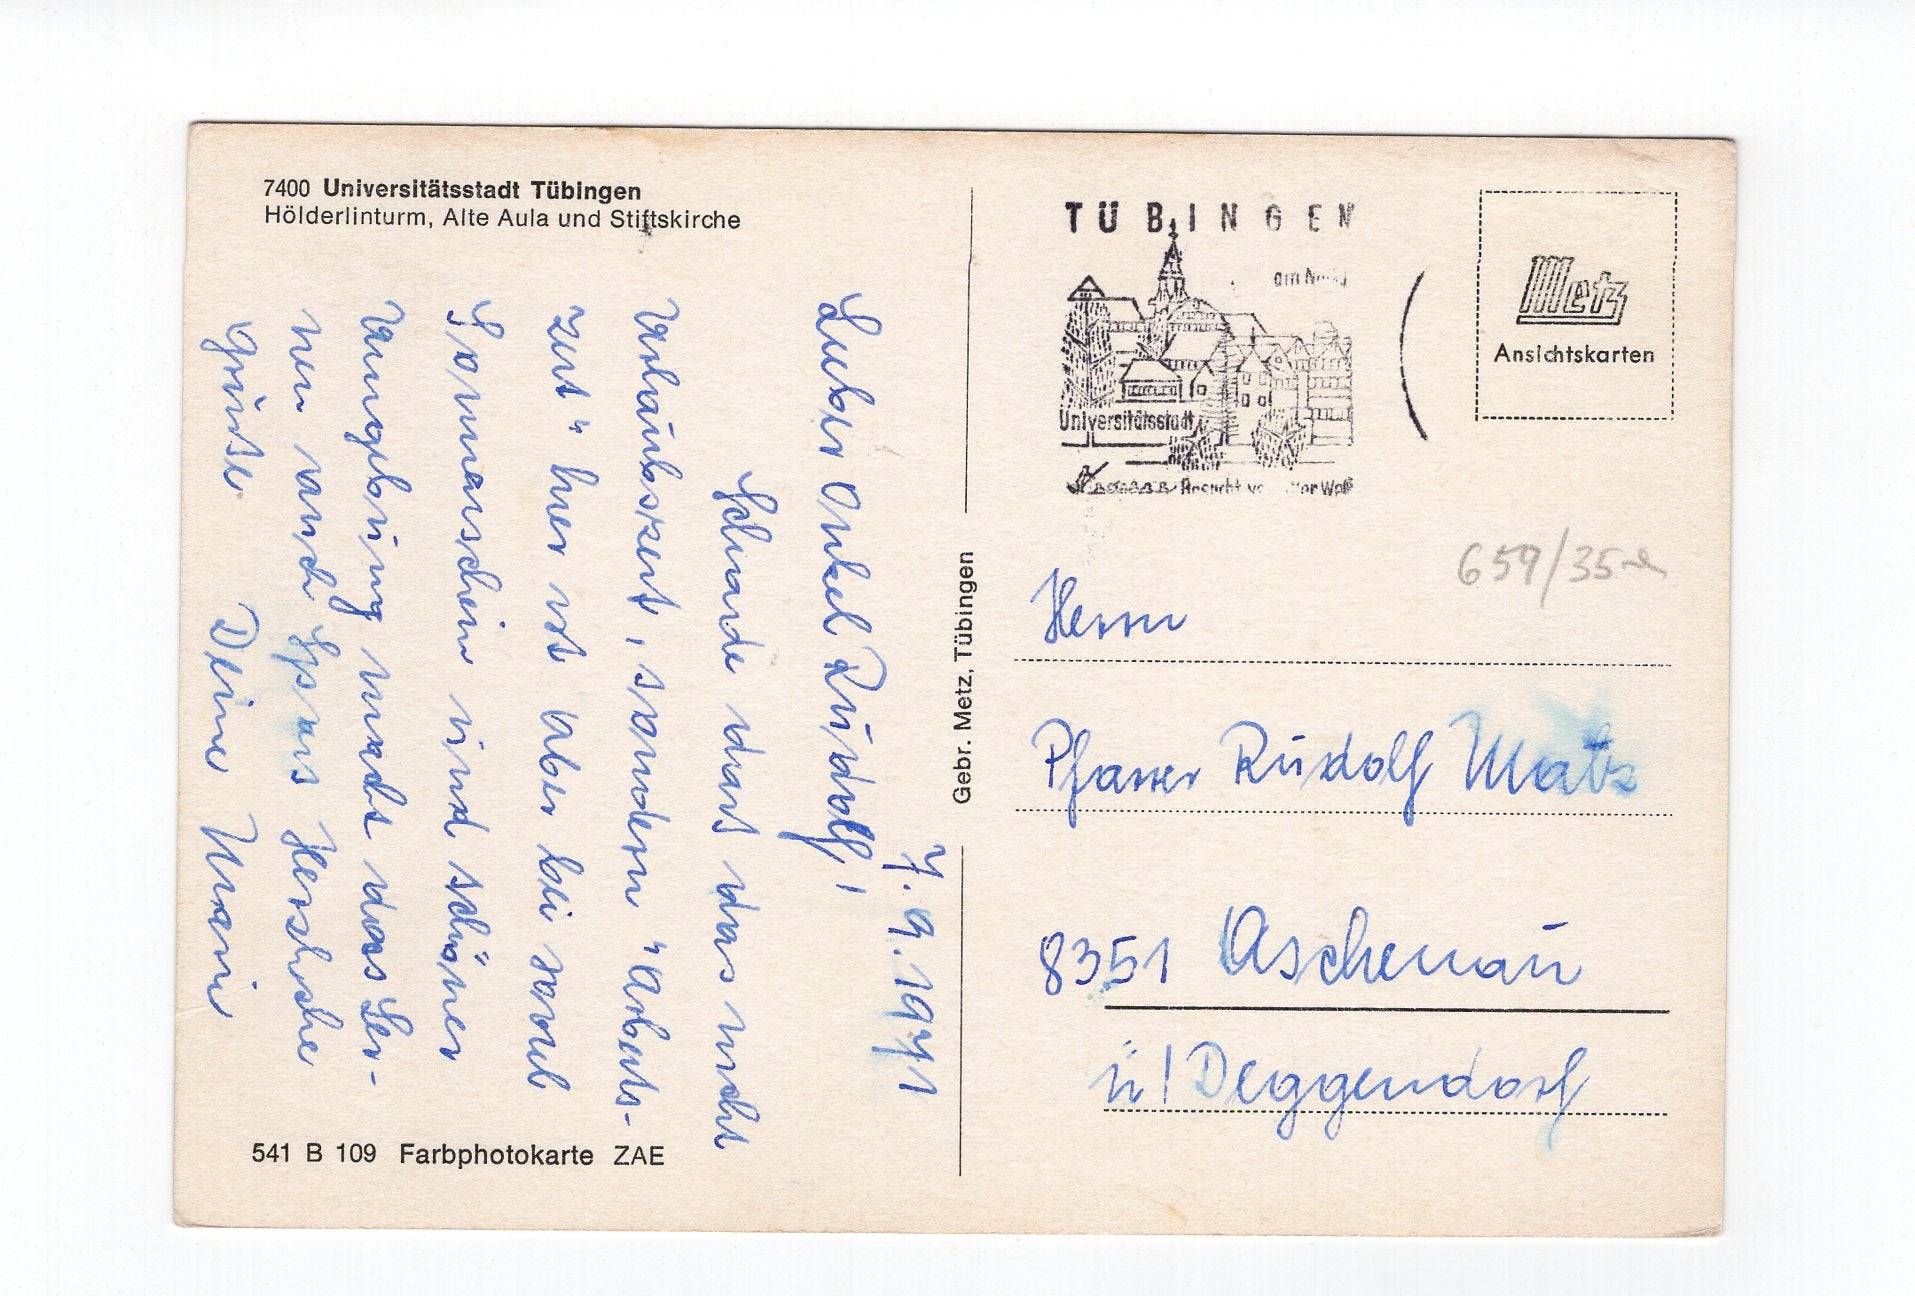 7400 Universitätsstadt Tübingen
Hölderlinturm, Alte Aula und Stiftskirche
7.9.1971
Lieber Onkel Rudolf!
Schade dass das nicht
Urlaubszeit, sondern "Arbeits-
zeit" hier ist. Aber bei soviel
Sonnenschein und schöner
Umgebung macht das Ler-
nen auch Spass. Herzliche
Grüsse Deine
541 B 109 Farbphotokarte ZAE
Gebr. Metz, Tübingen
TÜBINGEN
am
Universitätsstadt
Metz
Ansichtskarten
659/35
Herrn
Pfarrer Rudolf Matz
8351 Aschenau
ü! Deggendorf